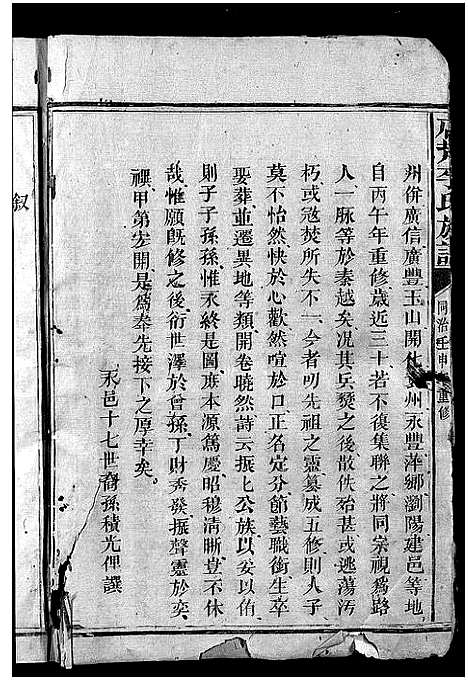 李氏族譜
同治壬申
重修
州併廣信廣豐玉山開化 州永豐萍鄉瀏陽建邑等地
自丙午年重修歲近三十若不復集聯之將同宗視爲路
人一脉等於秦越矣况其兵燹之後散佚殆甚或逃蕩汚
朽或寇焚所失不一今者叨先祖之靈纂成五修則人子
莫不怡然快於心歡然喧於口正名定分節藝職銜生卒
娶葬並遷異地等類開卷曉然詩云振振公族以妥以侑
則子子孫孫惟永終是圖庶本源篤慶昭穆清晰豈不休
哉惟願既修之後衍世澤於曾孫丁財秀發振聲靈於奕
禩甲第宏開是爲奉先接下之厚幸矣
永邑十七世裔孫積光俚譔
叙